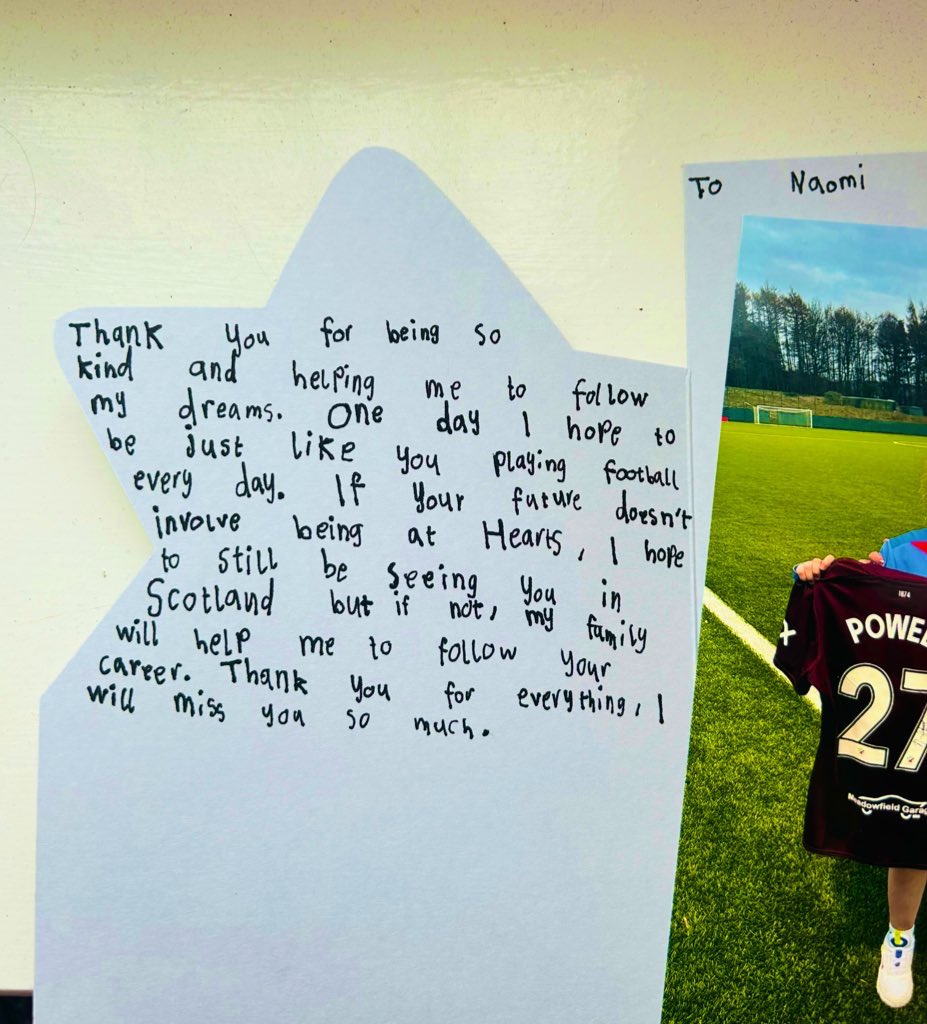 Thank you for being so
kind and helping me to follow
my dreams. One day I hope to
be just like you playing football
every day. If your future doesn't
involve being at Hearts, I hope
to still be seeing you in
Scotland but if not, my family
will help me to follow your
career. Thank you for everything, I
will miss you so much.
To Naomi
1874
POWE
27
Meadowfield Garag